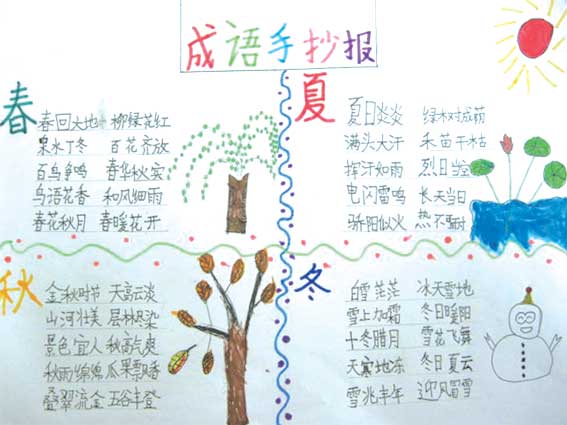 成语手抄报
春
春回大地 柳绿花红
泉水丁冬 百花齐放
百鸟争鸣 春华秋实
鸟语花香 和风细雨
春花秋月 春暖花开
夏
夏日炎炎 绿树成荫
满头大汗 禾苗干枯
挥汗如雨 烈日当空
电闪雷鸣 长天当日
骄阳似火 热不可耐
秋
金秋时节 天高云淡
山河壮美 层林尽染
景色宜人 秋高气爽
秋雨绵绵 瓜果飘香
叠翠流金 五谷丰登
冬
白雪茫茫 冰天雪地
雪上加霜 冬日暖阳
十冬腊月 雪花飞舞
天寒地冻 冬日夏云
雪兆丰年 迎风冒雪